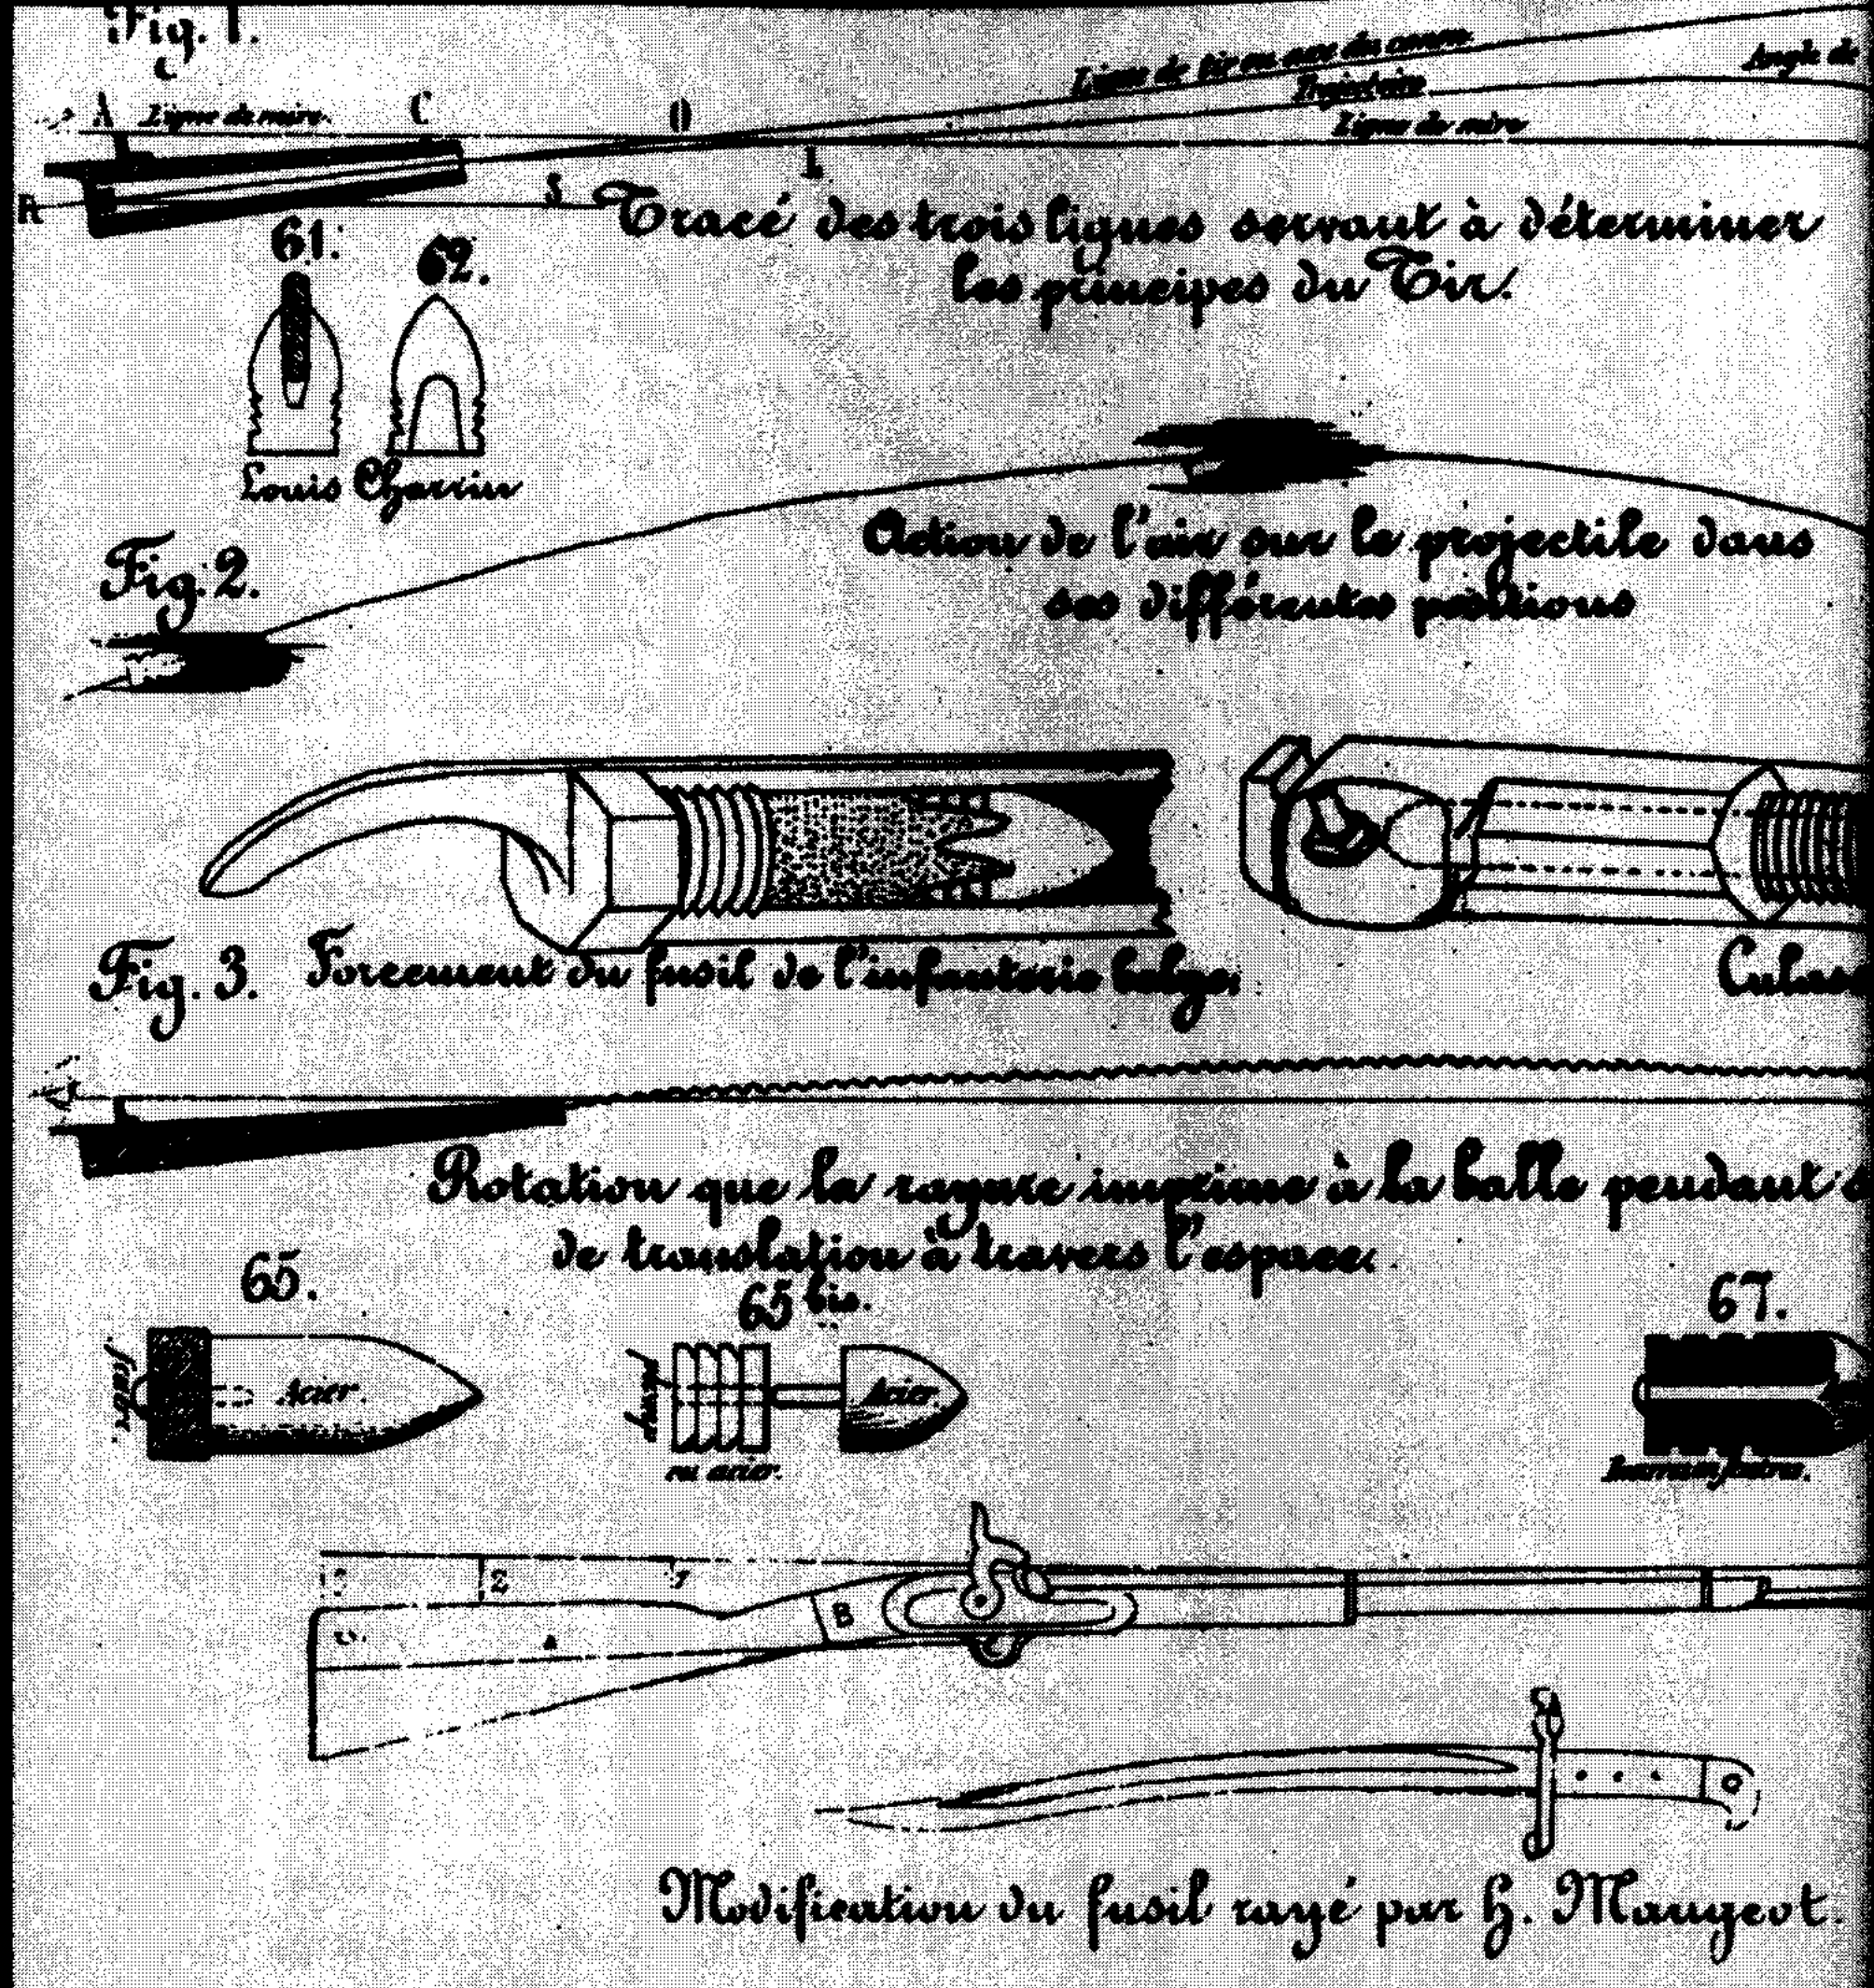 Fig. 1.
Ligne de tir ou axe du canon.
Angle de
Trajectoire
A Ligne de mire. C O
Ligne de mire
L
R S
Tracé des trois lignes servant à déterminer
les principes du Tir.
61. 62.
Louis Charrin
Action de l'air sur le projectile dans
ses différentes positions
Fig. 2.
Fig. 3. Forcement du fusil de l'infanterie belge.
Culass
Rotation que la rayure imprime à la balle pendant s
de translation à travers l'espace.
65. 65 bis. 67.
Acier. Acier.
ou acier.
3 2 1
B
Modification du fusil rayé par H. Mangeot.